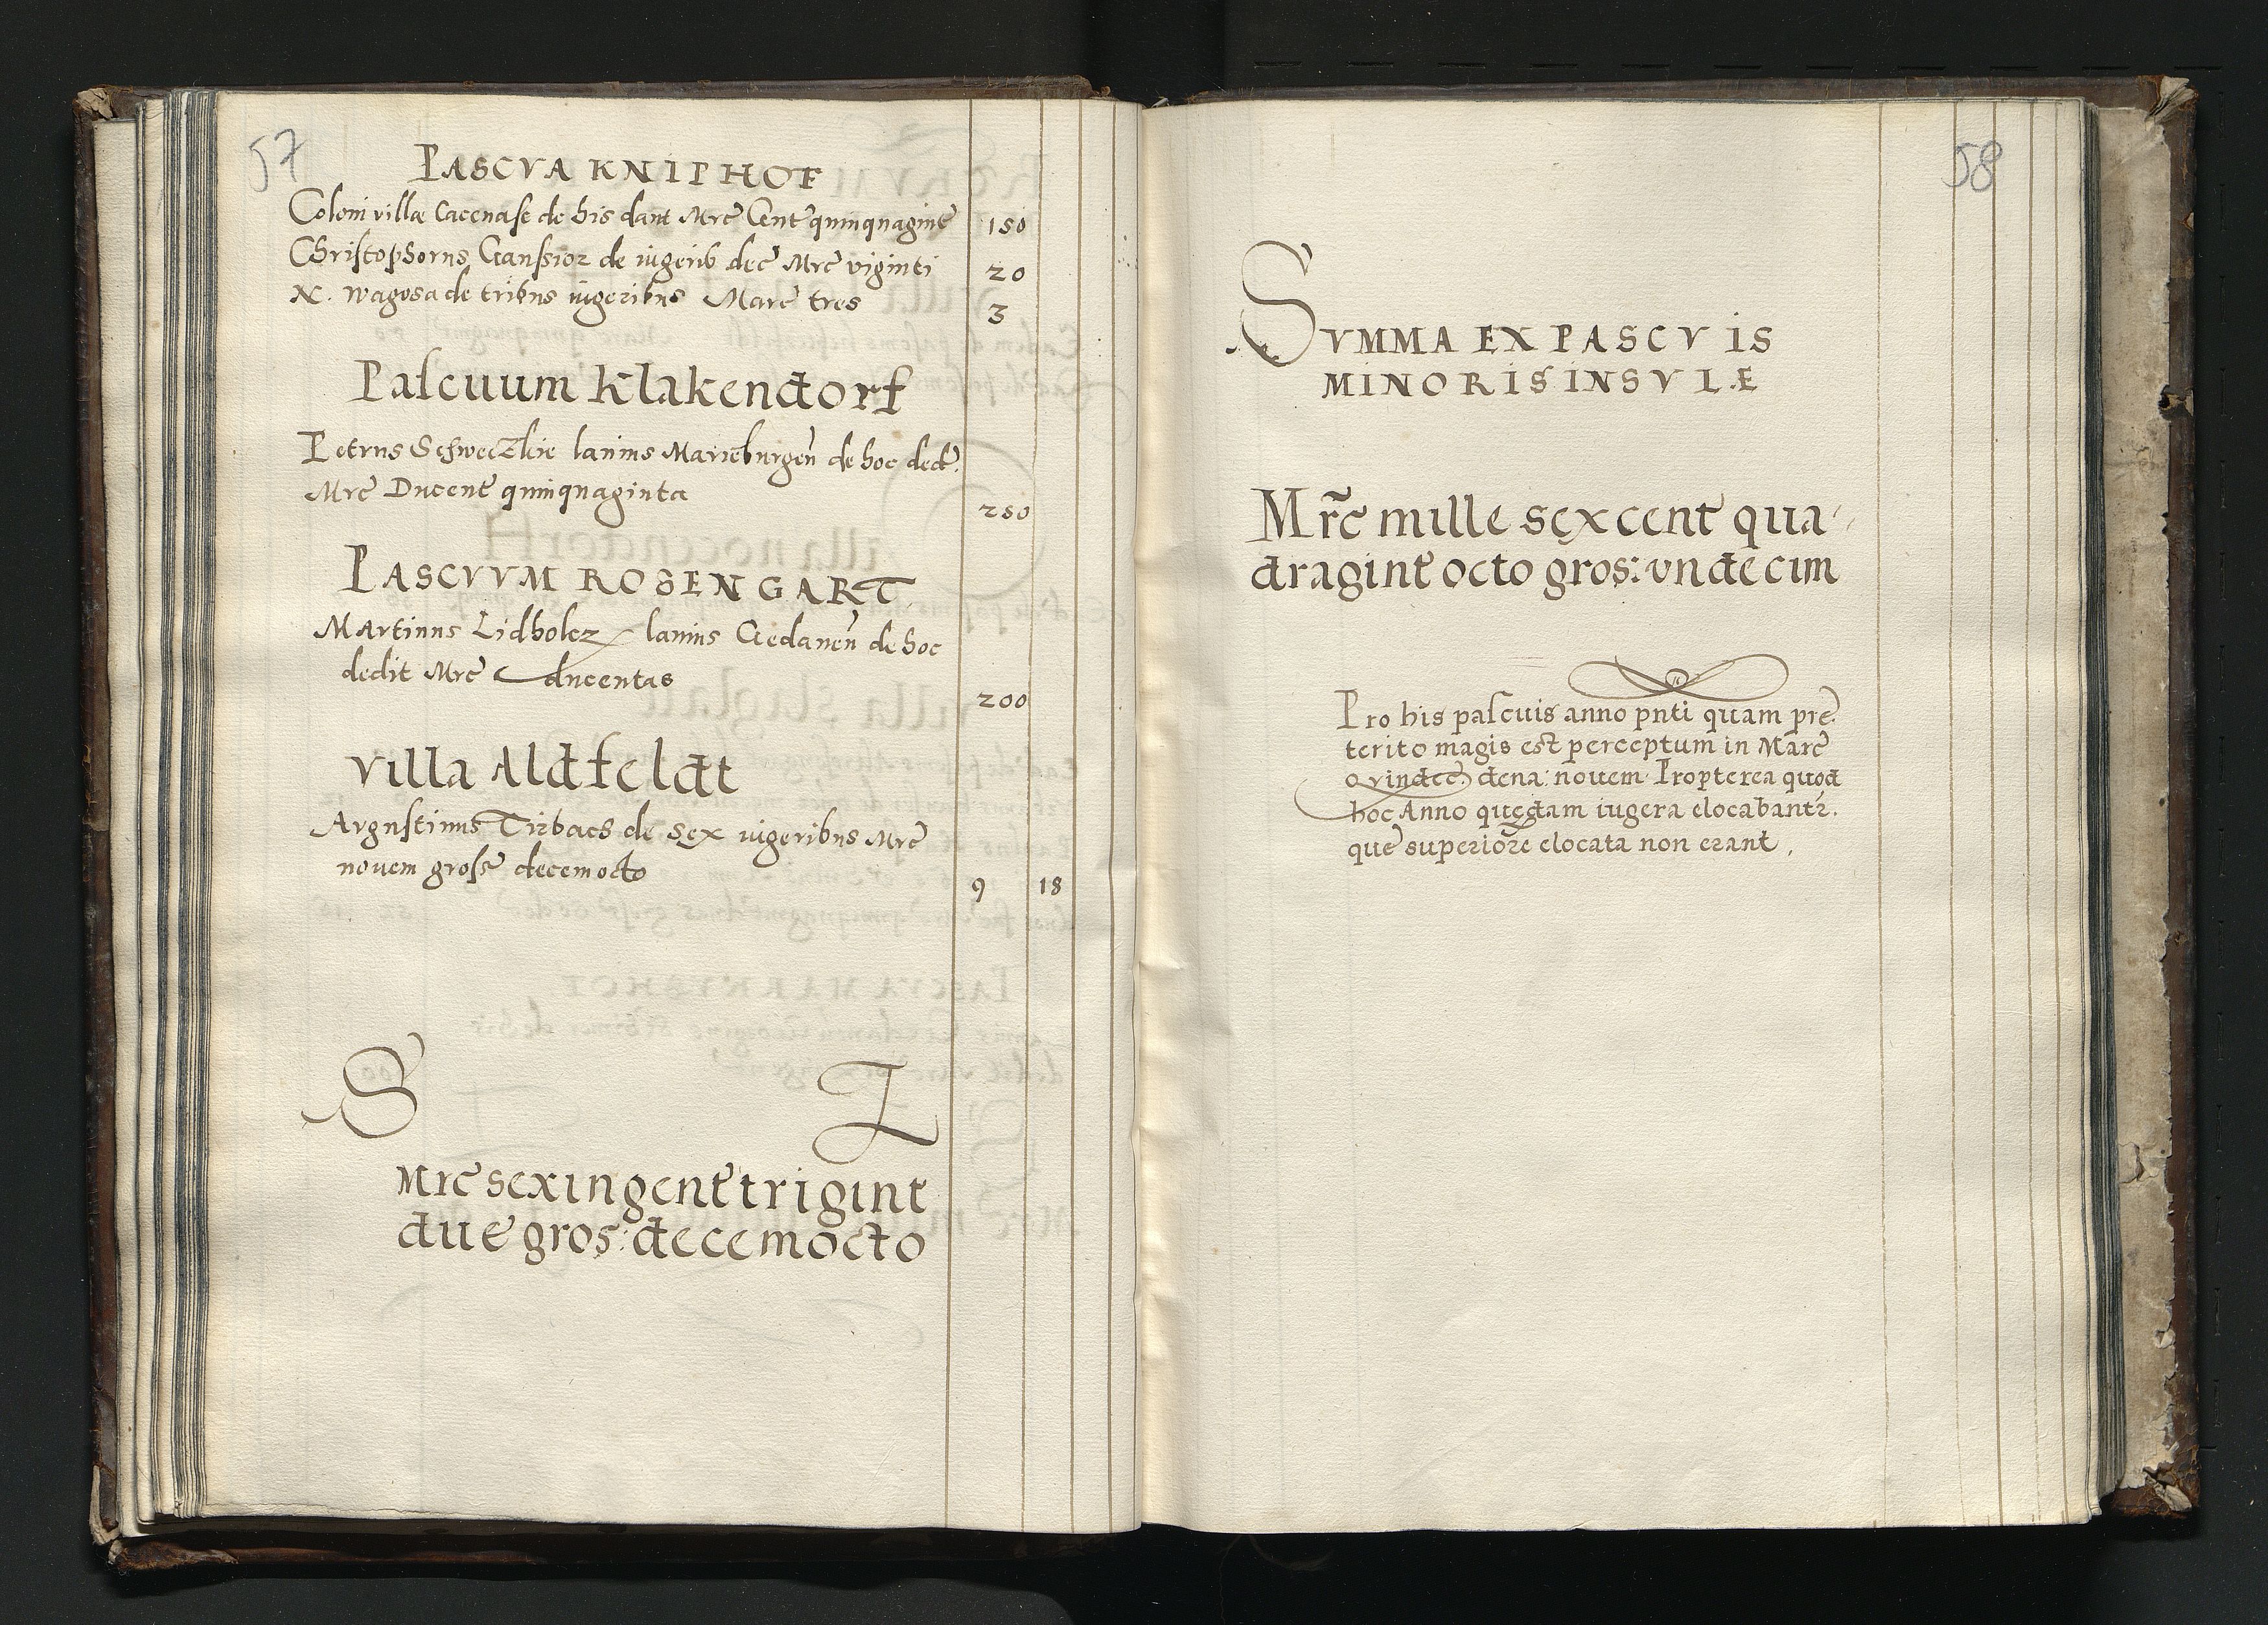 57
PASCVA KNIPHOF
Coloni villæ Cacenase de his dant Mrc Cent quinquagint 150
Christophorus Ganssior de iugerib dec Mrc viginti 20
N. Wagosa de tribus iugeribus Marc tres 3
Pascuum Klakendorf
Petrus Schweczkie lanius Marieburgen de hoc dedt
Mrc Ducent quinquaginta 250
PASCVVM ROSENGART
Martinus Lidholcz lanius Gedanen de hoc
dedit Mrc ducentas 200
Villa Aldfeldt
Argustinus Tirbach de sex iugeribus Mrc
novem gross decemocto 9 18
S L
Mrc sexingent trigint
due gros: decemocto
58
SVMMA EX PASCVIS
MINORIS INSVLÆ
Mrc mille sexcent qua
dragint octo gros: undecim
Pro his pascuis anno pnti quam pre
terito magis est perceptum in Marc
dena: novem Propterea quod
hoc Anno quedam iugera elocabantr.
que superiore elocata non erant.